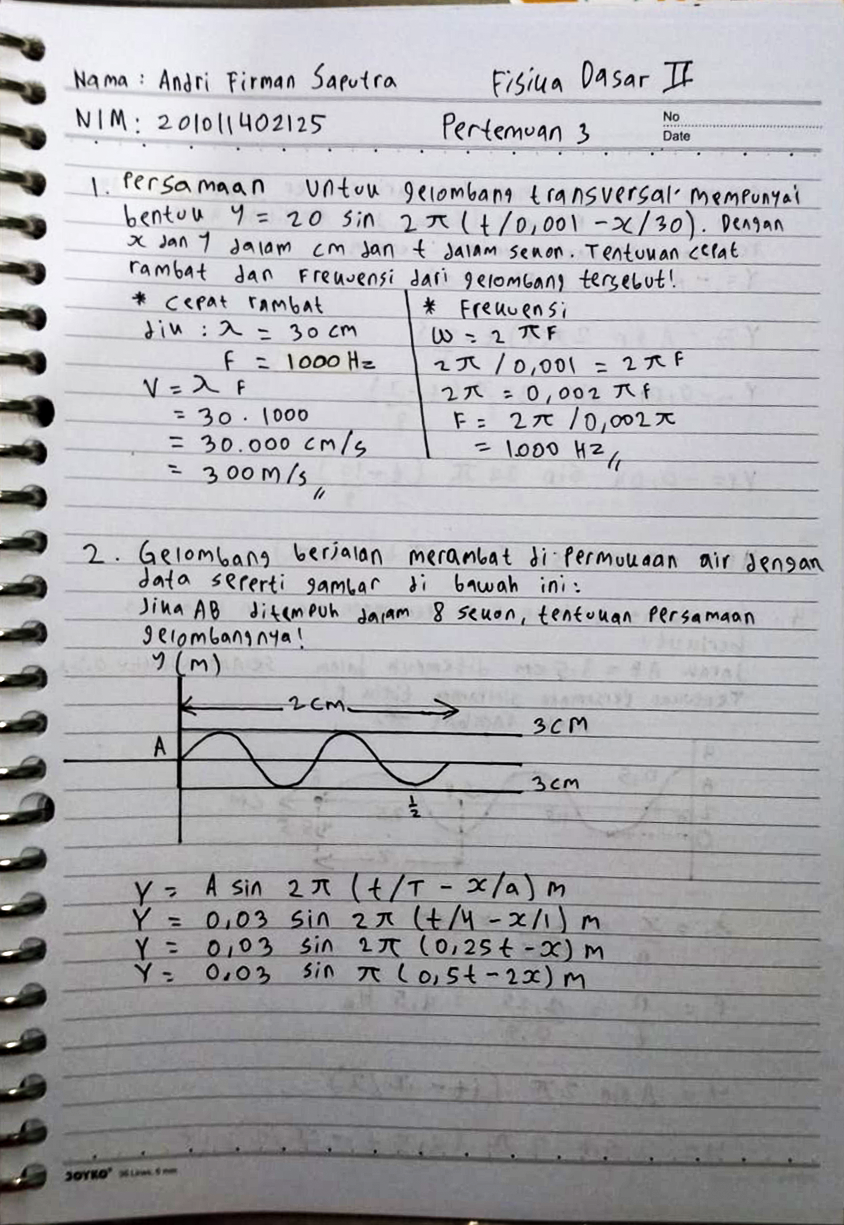 Nama : Andri Firman Saputra
Fisika Dasar II
NIM : 201011402125
Pertemuan 3
No
Date
1. Persamaan untuk gelombang transversal mempunyai
bentuk Y = 20 sin 2π (t/0,001 - x/30). Dengan
x dan Y dalam cm dan t dalam sekon. Tentukan cepat
rambat dan Frekuensi dari gelombang tersebut!
* Cepat rambat
dik : λ = 30 cm
F = 1000 Hz
V = λ F
= 30 . 1000
= 30.000 cm/s
= 300 m/s //
* Frekuensi
W = 2 π F
2π / 0,001 = 2π F
2π = 0,002 π F
F = 2π / 0,002π
= 1.000 HZ //
2. Gelombang berjalan merambat di permukaan air dengan
data seperti gambar di bawah ini :
Jika AB ditempuh dalam 8 sekon, tentukan Persamaan
gelombangnya!
Y (m)
2 cm
3 CM
A
3 cm
1/2
Y = A sin 2π (t/T - x/a) m
Y = 0,03 sin 2π (t/4 - x/1) m
Y = 0,03 sin 2π (0,25t - x) m
Y = 0,03 sin π (0,5t - 2x) m
JOYKO